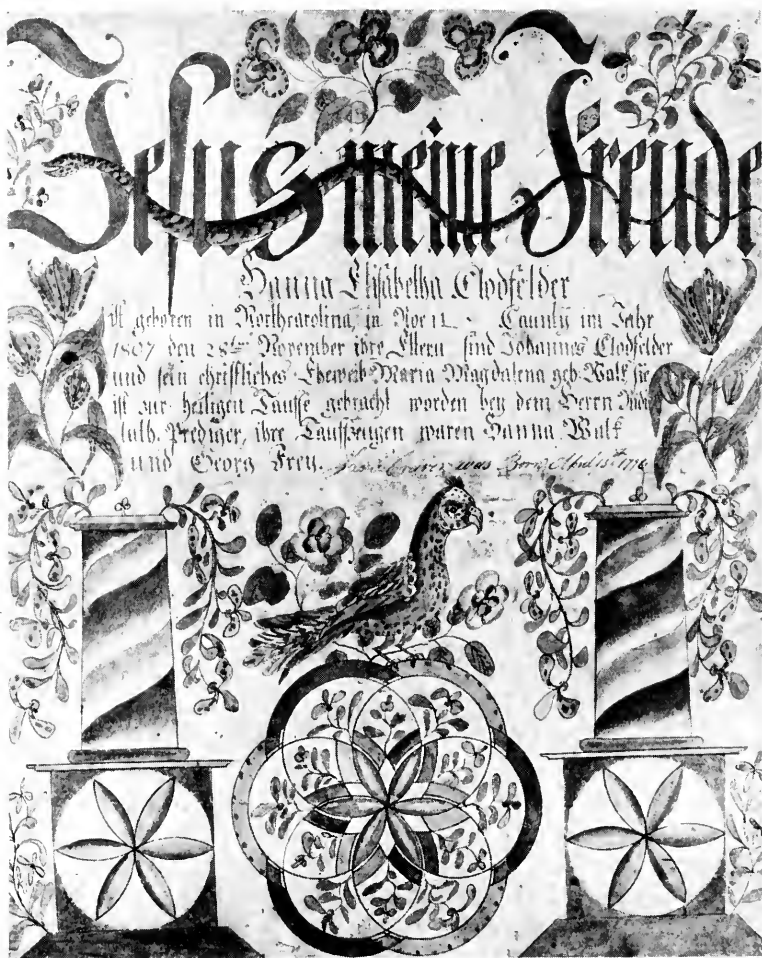 Jesus meine Freude
Hanna Elisabetha Clodfelder
Ist geboren in Northcarolina, in County im Jahr
1807 den 28ten November ihre Eltern sind Johannes Clodfelder
und sein christliches Eheweib Maria Magdalena geb. Walk sie
ist zur heiligen Tauffe gebracht worden bey dem Herrn
luth. Prediger, ihre Tauffzeugen waren Hanna Walk
und Georg Frey. was Born